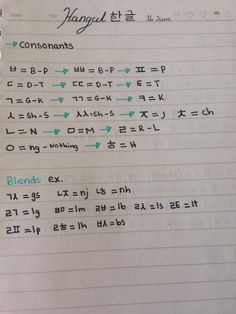 Hangul 한글 26 June
→ Consonants
ㅂ = B-P → ㅃ = B-P → ㅍ = P
ㄷ = D-T → ㄸ = D-T → ㅌ = T
ㄱ = G-K → ㄲ = G-K → ㅋ = K
ㅅ = Sh-S → ㅆ = Sh-S → ㅈ = J ㅊ = ch
ㄴ = N → ㅁ = M → ㄹ = R-L
ㅇ = ng-nothing → ㅎ = H
Blends ex.
ㄳ = gs ㄵ = nj ㄶ = nh
ㄺ = lg ㄻ = lm ㄼ = lb ㄽ = ls ㄾ = lt
ㄿ = lp ㅀ = lh ㅄ = bs